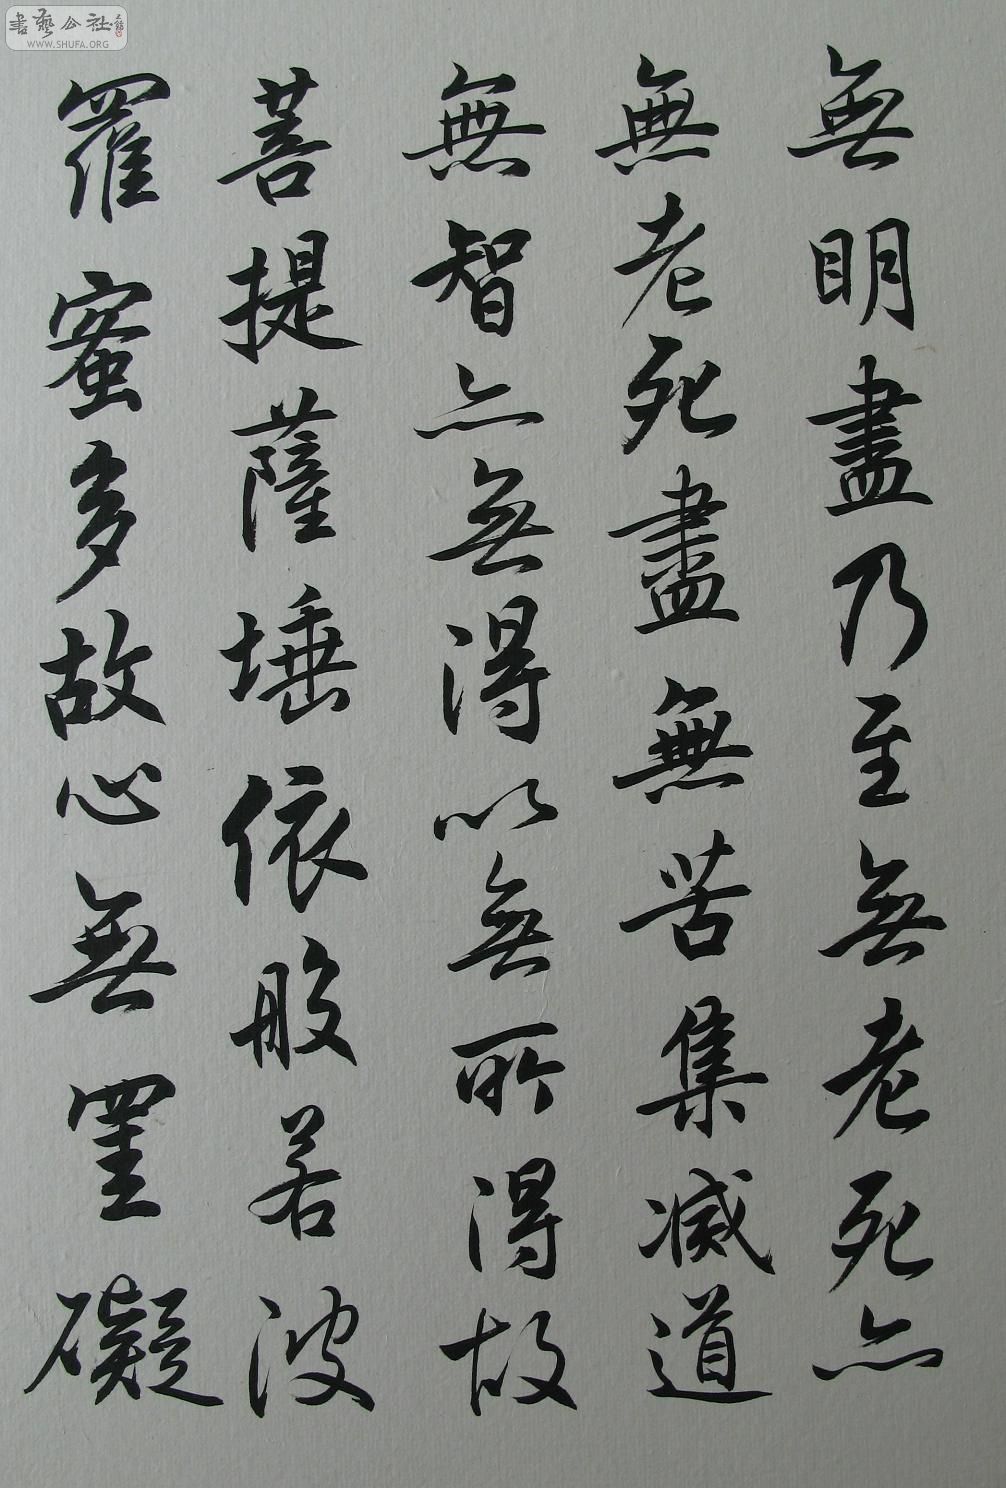 無明盡乃至無老死亦
無老死盡無苦集滅道
無智亦無得以無所得故
菩提薩埵依般若波
羅蜜多故心無罣礙
書藝公社
WWW.SHUFA.ORG